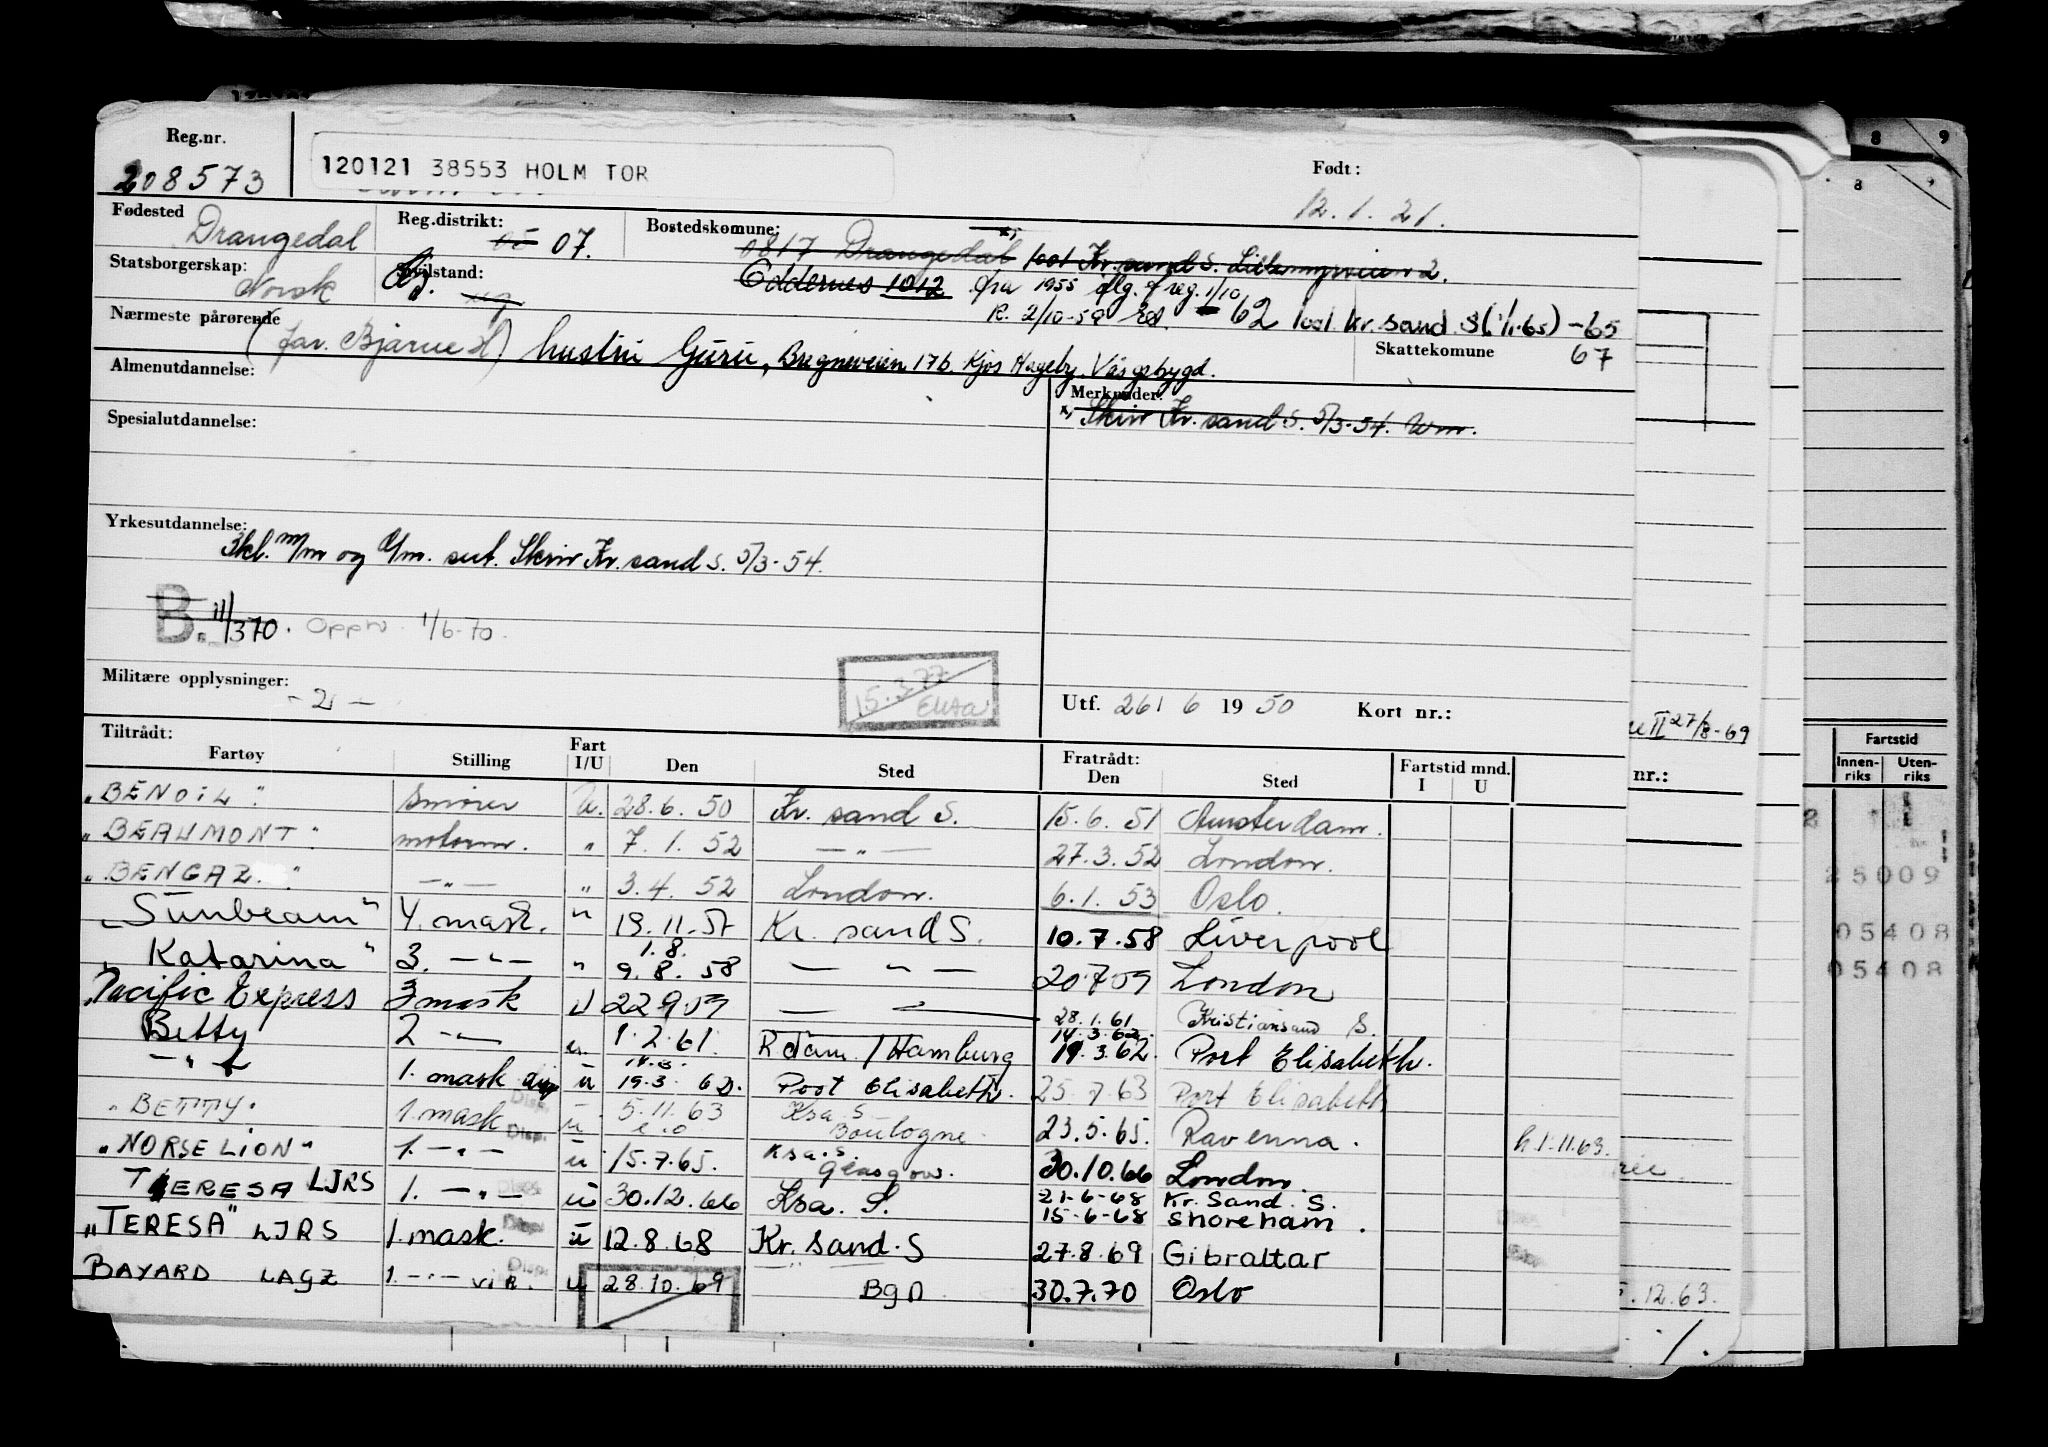 Reg.nr.
208573
120121 38553 HOLM TOR
Født:
12.1.21.
Fødested
Drangedal
Reg.distrikt:
05 07.
Bostedskomune:
0817 Drangedal 1001 Kr.sand S.
Statsborgerskap:
Norsk
Sivilstand:
ug
Oddernes 1012 fra 1955 iflg. f reg. 1/10
62 1001 kr.sand. S (1/1-65) -65
Nærmeste pårørende
(far. Bjarne H) hustru Guru, Bregneveien 17b. Kjos Hageby. Vågsbygd.
Skattekomune
67
Almenutdannelse:
Merknader:
x) Skriv Kr.sand S. 5/3-54. Wm.
Spesialutdannelse:
Yrkesutdannelse:
3kl. m/m og d/m. sert. Skriv Kr.sand S. 5/3-54.
B. 11/370. Opphv. 1/6-70.
Militære opplysninger:
- 2 -
15.3.77
Utf. 26/6 1950
Kort nr.:
II 27/8-69
nr.:
Tiltrådt:
Fartøy Stilling Fart I/U Den Sted Fratrådt: Den Sted Fartstid mnd. I U
Fartstid
Innen-riks Uten-riks
"BENOIL" Smører U. 28.6.50 Kr. sand S. 15.6.51 Amsterdam.
"BEAUMONT" motorm. " 7.1.52 — " — 27.3.52 London.
"BENGAZ" — " — " 3.4.52 London. 6.1.53 Oslo.
"Sunbeam" 4. mask. " 19.11.57 Kr. sand S. 10.7.58 Liverpool
"Katarina" 3. — " — " 1.8. 9.8.58 — " — 20.7.59 London
Pacific Express 3 mask U 22.9.59 — " — 28.1.61 Kristiansand S.
Betty 2 — " — u. 1.2.61. R dam. / Hamburg 14.3.62. 19.3.62. Port Elisabeth.
— " — 1. mask disp u 14.3. 19.3.62. Port Elisabeth. 25.7.63 Port Elisabeth
"BETTY" 1. mask Disp. u 5.11.63 Ksa. S Boulogne 23.5.65. Ravenna. h 1.11.63.
"NORSE LION" 1. — " — Disp. u 15.7.65. Ksa. S. Glasgow. 30.10.66 London.
TERESA LJRS 1. — " — Disp. u 30.12.66 Ksa. S. 21-6-68 Kr. Sand. S.
15-6-68 Shoreham.
"TERESA" LJRS 1. mask. Disp. u 12.8.68 Kr. Sand. S 27.8.69 Gibraltar
BAYARD LAGZ 1. — " — vik. Disp. u 28.10.69 Bgn 30.7.70 Oslo
25009
05408
05408
.12.63.
1.
8 9
8 9